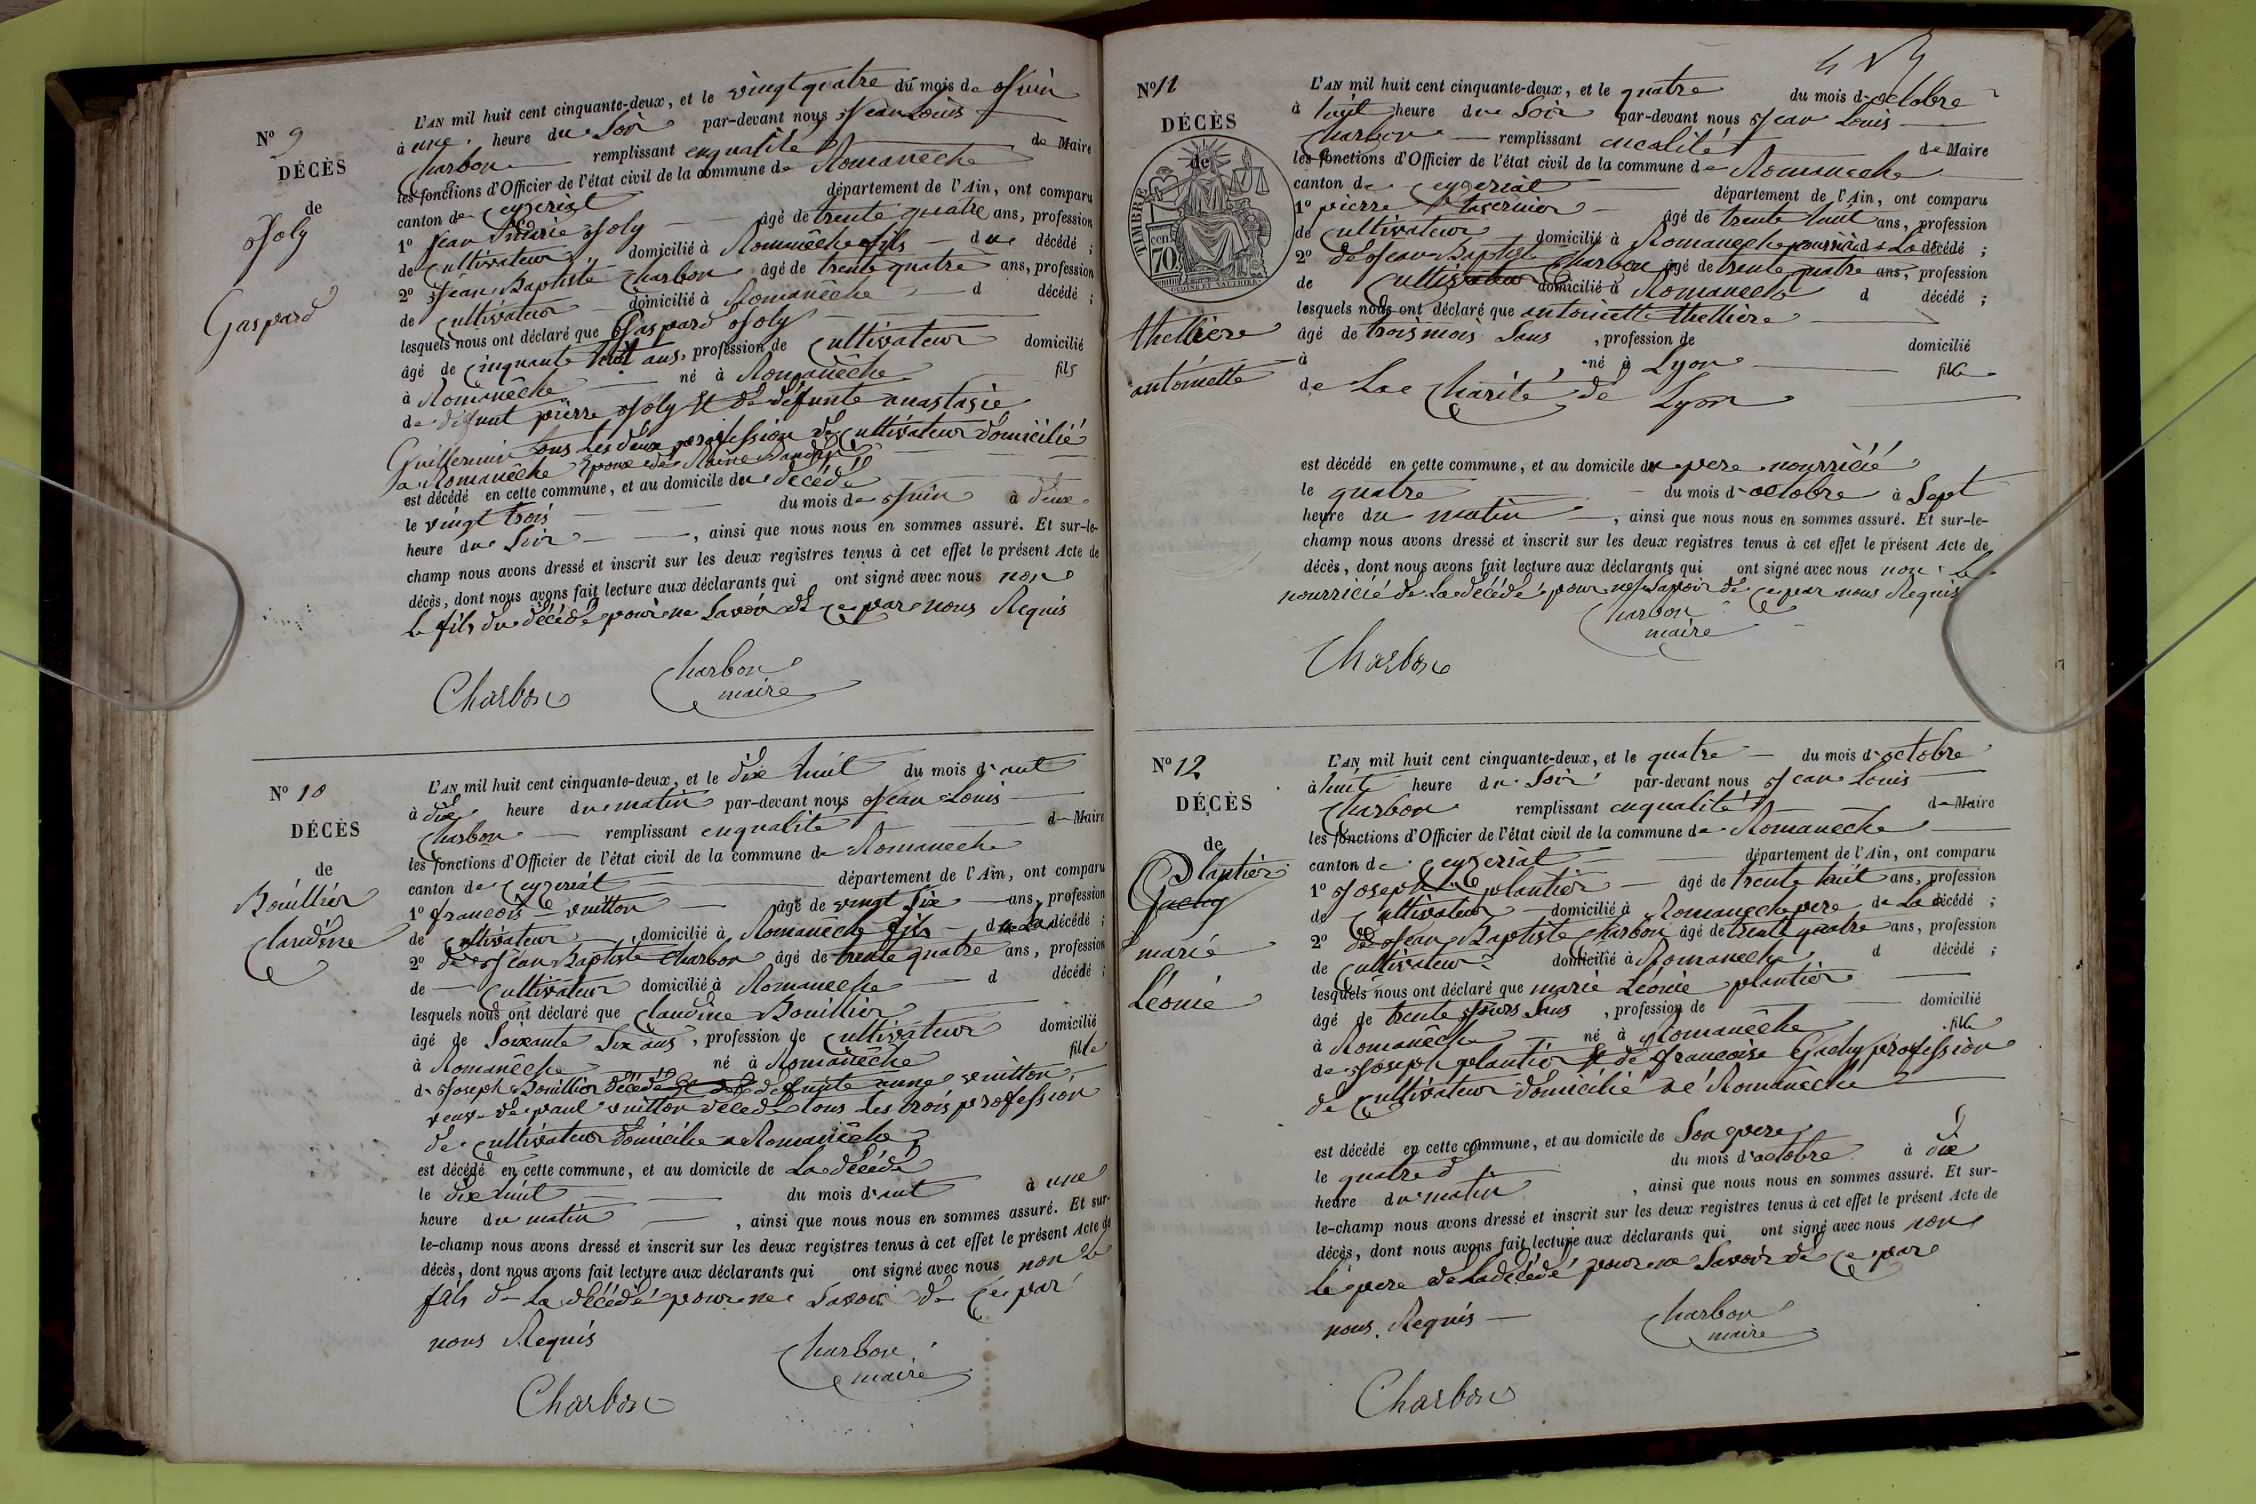 N° 9
DÉCÈS
de
Joly
Gaspard
L'AN mil huit cent cinquante-deux, et le vingt quatre du mois de Juin
à une heure du Soir par-devant nous Jean Louis
Charbon remplissant enqualité de Maire
les fonctions d'Officier de l'état civil de la commune de Romanêche
canton de Ceyzeriat département de l'Ain, ont comparu
1° Jean Marie Joly âgé de trente quatre ans, profession
de Cultivateur domicilié à Romanêche fils du décédé ;
2° Jean Baptiste Charbon âgé de trente quatre ans, profession
de Cultivateur domicilié à Romanêche d décédé ;
lesquels nous ont déclaré que Gaspard Joly
âgé de Cinquante huit ans, profession de Cultivateur domicilié
à Romanêche né à Romanêche fils
de défunt pierre Joly et de défunte anastasie
Guillermin tous les deux profession de Cultivateur domicilié
a Romanêche Epoux de
est décédé en cette commune, et au domicile du décédé
le vingt trois du mois de Juin à deux
heure du Soir , ainsi que nous nous en sommes assuré. Et sur-le-
champ nous avons dressé et inscrit sur les deux registres tenus à cet effet le présent Acte de
décès, dont nous avons fait lecture aux déclarants qui ont signé avec nous non
le fils du décédé pour ne Savoir de ce par nous Requis
Charbon Charbon
maire
N° 10
DÉCÈS
de
Bouillier
Claudine
L'AN mil huit cent cinquante-deux, et le dix huit du mois d'aut
à dix heure du matin par-devant nous Jean Louis
Charbon remplissant enqualité de Maire
les fonctions d'Officier de l'état civil de la commune de Romaneche
canton de Ceyzeriat département de l'Ain, ont comparu
1° francois vuitton âgé de vingt Six ans, profession
de Cultivateur domicilié à Romanêche fils de La décédé ;
2° de Jean Baptiste Charbon âgé de trente quatre ans, profession
de Cultivateur domicilié à Romaneche d décédé ;
lesquels nous ont déclaré que Claudine Bouillier
âgé de Soixante Six ans , profession de Cultivateur domicilié
à Romanêche né à Romanêche fille
de Joseph Bouillier décédé et de defunte anne vuitton
veuve de paul vuitton décédé tous les trois profession
de Cultivateur domicilie a Romanêche
est décédé en cette commune, et au domicile de La décédé
le dix huit du mois d'aut à une
heure du matin , ainsi que nous nous en sommes assuré. Et sur-
le-champ nous avons dressé et inscrit sur les deux registres tenus à cet effet le présent Acte de
décès, dont nous avons fait lecture aux déclarants qui ont signé avec nous non le
fils de La décédé pour ne Savoir de Ce par
nous Requis
Charbon
maire
Charbon
N° 11
DÉCÈS
de
TIMBRE
70
thelliere
antoinette
L'AN mil huit cent cinquante-deux, et le quatre du mois d'octobre
à huit heure du Soir par-devant nous Jean Louis
Charbon remplissant de Maire
les fonctions d'Officier de l'état civil de la commune de Romaneche
canton de Ceyzeriat département de l'Ain, ont comparu
1° pierre tavernier âgé de trente huit ans, profession
de Cultivateur domicilié à Romaneche de La décédé ;
2° de Jean Baptiste Charbon âgé de trente quatre ans, profession
de Cultivateur domicilié à Romaneche d décédé ;
lesquels nous ont déclaré que antoinette thelliere
âgé de trois mois Sans , profession de domicilié
à né à Lyon fille
de La Charité de Lyon
est décédé en cette commune, et au domicile du pere nourricié
le quatre du mois d'octobre à Sept
heure du matin , ainsi que nous nous en sommes assuré. Et sur-le-
champ nous avons dressé et inscrit sur les deux registres tenus à cet effet le présent Acte de
décès, dont nous avons fait lecture aux déclarants qui ont signé avec nous non Le
nourricié de La décédé pour ne Savoir de ce par nous Requis
Charbon
maire
Charbon
N° 12
DÉCÈS
de
Plantier
Gachy
marie
Léonie
L'AN mil huit cent cinquante-deux, et le quatre du mois d'octobre
à huit heure du Soir par-devant nous Jean Louis
Charbon remplissant enqualité de Maire
les fonctions d'Officier de l'état civil de la commune de Romaneche
canton de Ceyzeriat département de l'Ain, ont comparu
1° Joseph plantier âgé de trente huit ans, profession
de Cultivateur domicilié à Romaneche pere de La décédé ;
2° de Jean Baptiste Charbon âgé de trente quatre ans, profession
de Cultivateur domicilié à Romaneche d décédé ;
lesquels nous ont déclaré que marie Léonie plantier
âgé de trente Jours Sans , profession de domicilié
à Romanêche né à Romanêche fille
de Joseph plantier et de francoise Gachy profession
de Cultivateur domicilié a Romanêche
est décédé en cette commune, et au domicile de Son pere
le quatre du mois d'octobre à dix
heure du matin , ainsi que nous nous en sommes assuré. Et sur-
le-champ nous avons dressé et inscrit sur les deux registres tenus à cet effet le présent Acte de
décès, dont nous avons fait lecture aux déclarants qui ont signé avec nous non
Le pere de La décédé pour ne Savoir de Ce par
nous Requis
Charbon
maire
Charbon